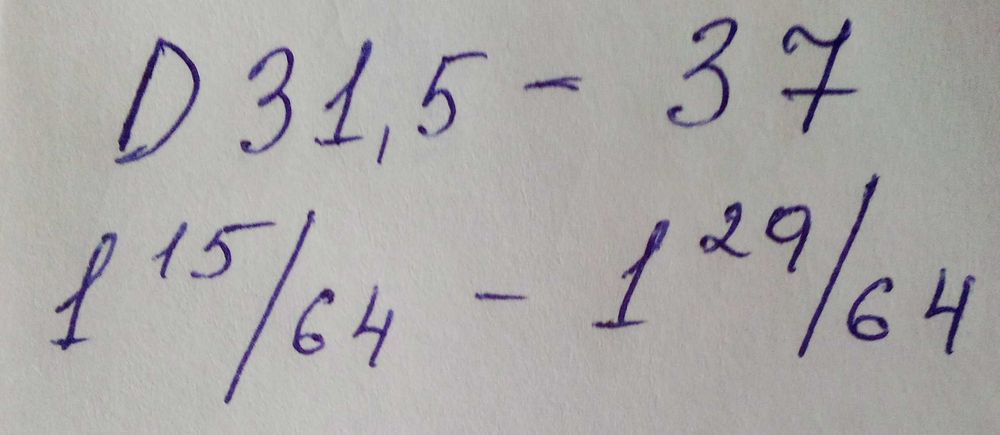 D 31,5 - 37
1 15/64 - 1 29/64